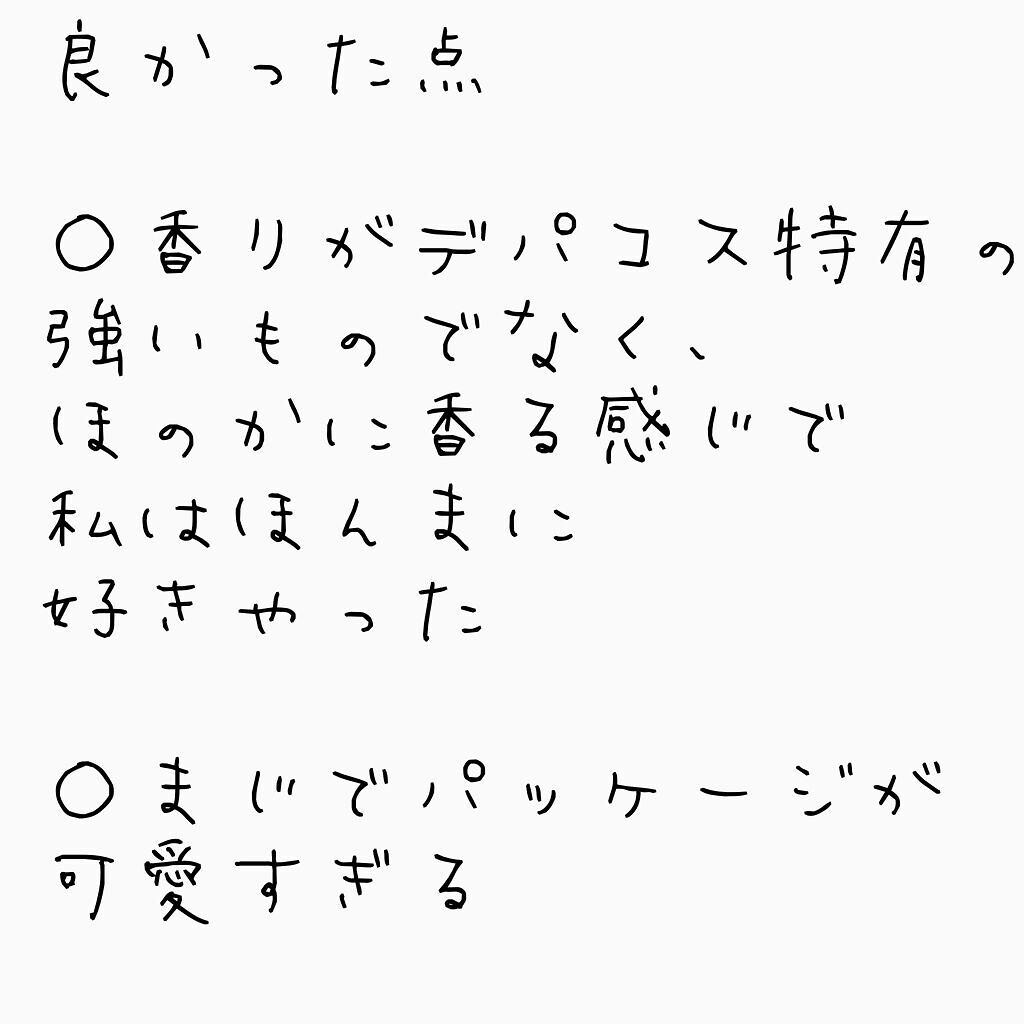 良かった点
○香りがデパコス特有の
強いものでなく、
ほのかに香る感じで
私はほんまに
好きやった
○まじでパッケージが
可愛すぎる